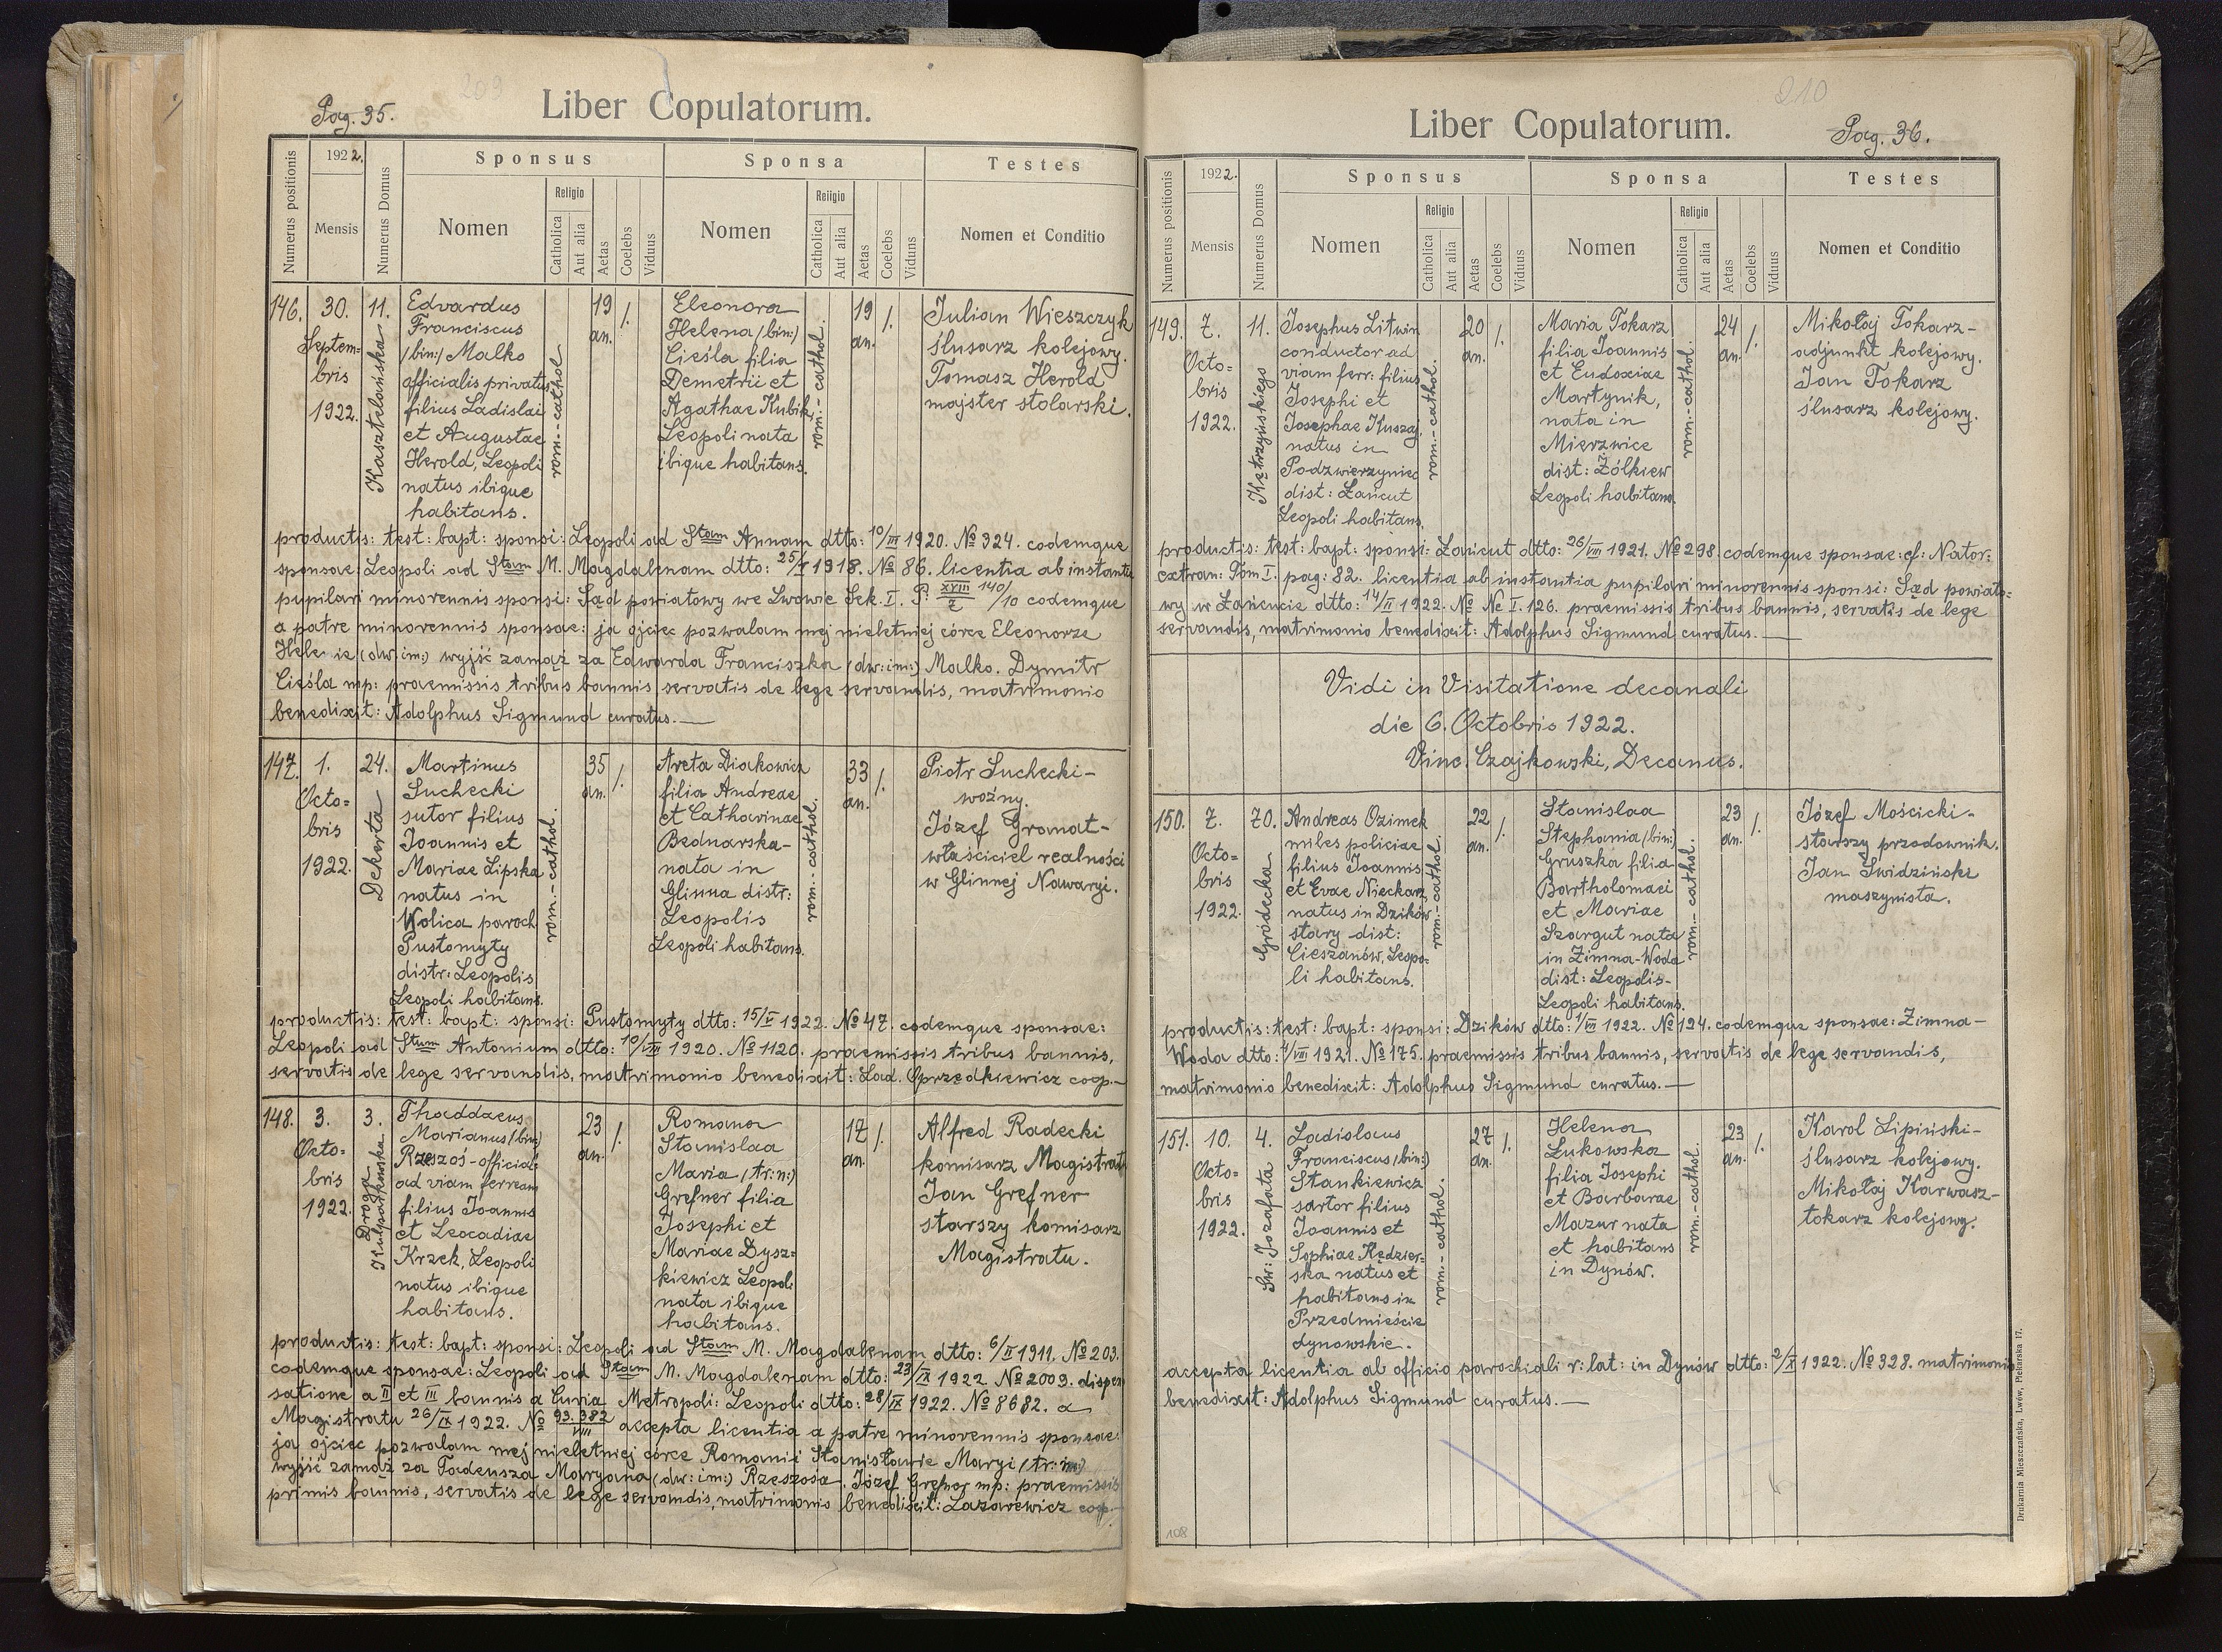 Pag. 35.
209
Liber Copulatorum.
Numerus positionis
1922.
Mensis
Numerus Domus
Sponsus
Nomen
Religio
Catholica
Aut alia
Aetas
Coelebs
Viduus
Sponsa
Nomen
Religio
Catholica
Aut alia
Aetas
Coelebs
Viduus
Testes
Nomen et Conditio
146.
30.
Septem=
bris
1922.
11.
Kasztelańska
Edvardus
Franciscus
/bin:/ Malko
officialis privatus
filius Ladislai
et Augustae
Herold, Leopoli
natus ibique
habitans.
rom.-cathol.
19
an.
/.
Eleonora
Helena /bin:/
Cieśla filia
Demetrii et
Agathae Kubik
Leopoli nata
ibique habitans.
rom.-cathol.
19
an.
/.
Julian Wieszczyk
ślusarz kolejowy.
Tomasz Herold
majster stolarski.
productis: test: bapt: sponsi: Leopoli ad Stam Annam dtto: 10/III 1920. № 324. eodemque
sponsae: Leopoli ad Stam M. Magdalenam dtto: 25/I 1918. № 86. licentia ab instantia
pupilari minorennis sponsi: Sąd powiatowy we Lwowie Sek. I. P. XVIII/2 140/10 eodemque
a patre minorennis sponsae: ja ojciec pozwalam mej nieletniej córce Eleonorze
Helenie (dw: im:) wyjść zamąż za Edwarda Franciszka (dw: im:) Malko. Dymitr
Cieśla mp: praemissis tribus bannis servatis de lege servandis, matrimonio
benedixit: Adolphus Sigmund curatus.—
147.
1.
Octo=
bris
1922.
24.
Dekerta
Martinus
Suchecki
sutor filius
Joannis et
Mariae Lipska
natus in
Wolica paroch
Pustomyty
distr: Leopolis
Leopoli habitans.
rom.-cathol.
35
an.
/.
Areta Diakowicz
filia Andreae
et Catharinae
Bednarska-
nata in
Glinna distr:
Leopolis
Leopoli habitans.
rom.-cathol.
33
an.
/.
Piotr Suchecki-
woźny.
Józef Gromat-
właściciel realności
w Glinnej Nawaryi.
productis: test: bapt: sponsi: Pustomyty dtto: 15/V 1922. № 47. eodemque sponsae:
Leopoli ad Stum Antonium dtto: 10/VIII 1920. № 1120. praemissis tribus bannis,
servatis de lege servandis, matrimonio benedixit: Lad. Oprzędkiewicz coop.—
148.
3.
Octo=
bris
1922.
3.
Droga
Kulparkowska
Thaddaeus
Marianus /bin:/
Rzeszoś-official:
ad viam ferream
filius Joannis
et Leocadiae
Krzek, Leopoli
natus ibique
habitans.
23
an.
/.
Romana
Stanislaa
Maria /tr: n:/
Grefner filia
Josephi et
Mariae Dysz=
kiewicz Leopoli
nata ibique
habitans.
17
an.
/.
Alfred Radecki
komisarz Magistrat
Jan Grefner
starszy komisarz
Magistratu.
productis: test: bapt: sponsi: Leopoli ad Stam M. Magdalenam dtto: 6/II 1911. № 203.
eodemque sponsae: Leopoli ad Stam M. Magdalenam dtto: 23/IX 1922 № 2009. dispen
satione a II et III bannis a Curia Metropoli: Leopoli dtto: 28/IX 1922. № 8682. a
Magistratu 26/IX 1922. № 93.382/VIII accepta licentia a patre minorennis sponsae:
ja ojciec pozwalam mej nieletniej córce Romanii Stanisławie Maryi (tr: im:)
wyjść zamąż za Tadeusza Maryana (dw: im:) Rzeszosia. Józef Grefner mp: praemissis
primis bannis, servatis de lege servandis, matrimonio benedixit: Lazarewicz coop.—
210
Liber Copulatorum.
Pag. 36.
Numerus positionis
1922.
Mensis
Numerus Domus
Sponsus
Nomen
Religio
Catholica
Aut alia
Aetas
Coelebs
Viduus
Sponsa
Nomen
Religio
Catholica
Aut alia
Aetas
Coelebs
Viduus
Testes
Nomen et Conditio
149.
7.
Octo=
bris
1922.
11.
Kętrzyńskiego
Josephus Litwin
conductor ad
viam ferr: filius
Josephi et
Josephae Kuszaj
natus in
Podzwierzyniec
dist: Łańcut
Leopoli habitans.
rom.-cathol.
20
an.
/.
Maria Tokarz
filia Joannis
et Eudoxiae
Martynik,
nata in
Mierzwice
dist: Żółkiew
Leopoli habitans.
rom.-cathol.
24
an.
/.
Mikołaj Tokarz-
adjunkt kolejowy.
Jan Tokarz
ślusarz kolejowy.
productis: test: bapt: sponsi: Łańcut dtto: 26/VIII 1921. № 298. eodemque sponsae: cf: Nator:
extran: Tom I. pag: 82. licentia ab instantia pupilari minorennis sponsi: Sąd powiato=
wy w Łańcucie dtto: 14/II 1922. № Nc I. 126. praemissis tribus bannis, servatis de lege
servandis, matrimonio benedixit: Adolphus Sigmund curatus.—
Vidi in Visitatione decanali
die 6. Octobris 1922.
Vinc. Czajkowski, Decanus.
150.
7.
Octo=
bris
1922.
70.
Gródecka
Andreas Ozimek
miles policiae
filius Joannis
et Evae Nieckarz
natus in Dzików
stary dist:
Cieszanów, Leopo=
li habitans.
rom.-cathol.
22
an.
/.
Stanislaa
Stephania /bin:/
Gruszka filia
Bartholomaei
et Mariae
Szargut nata
in Zimna-Woda
dist: Leopolis-
Leopoli habitans.
rom.-cathol.
23
an.
/.
Józef Mościcki-
starszy przodownik.
Jan Swidziński
maszynista.
productis: test: bapt: sponsi: Dzików dtto: 1/VII 1922. № 124. eodemque sponsae: Zimna-
Woda dtto: 4/VIII 1921. № 175. praemissis tribus bannis, servatis de lege servandis,
matrimonio benedixit: Adolphus Sigmund curatus.—
151.
10.
Octo=
bris
1922.
4.
Św: Jozafata
Ladislaus
Franciscus /bin:/
Stankiewicz
sartor filius
Joannis et
Sophiae Kędzier=
ska natus et
habitans in
Przedmieście
dynowskie.
rom.-cathol.
27
an.
/.
Helena
Łukowska
filia Josephi
et Barbarae
Mazur nata
et habitans
in Dynów.
rom.-cathol.
23
an.
/.
Karol Lipiński-
ślusarz kolejowy.
Mikołaj Karwasz-
tokarz kolejowy.
accepta licentia ab officio parochiali r: lat: in Dynów dtto: 2/X 1922. № 328. matrimonio
benedixit: Adolphus Sigmund curatus.—
108
Drukarnia Mieszczańska, Lwów, Piekarska 17.